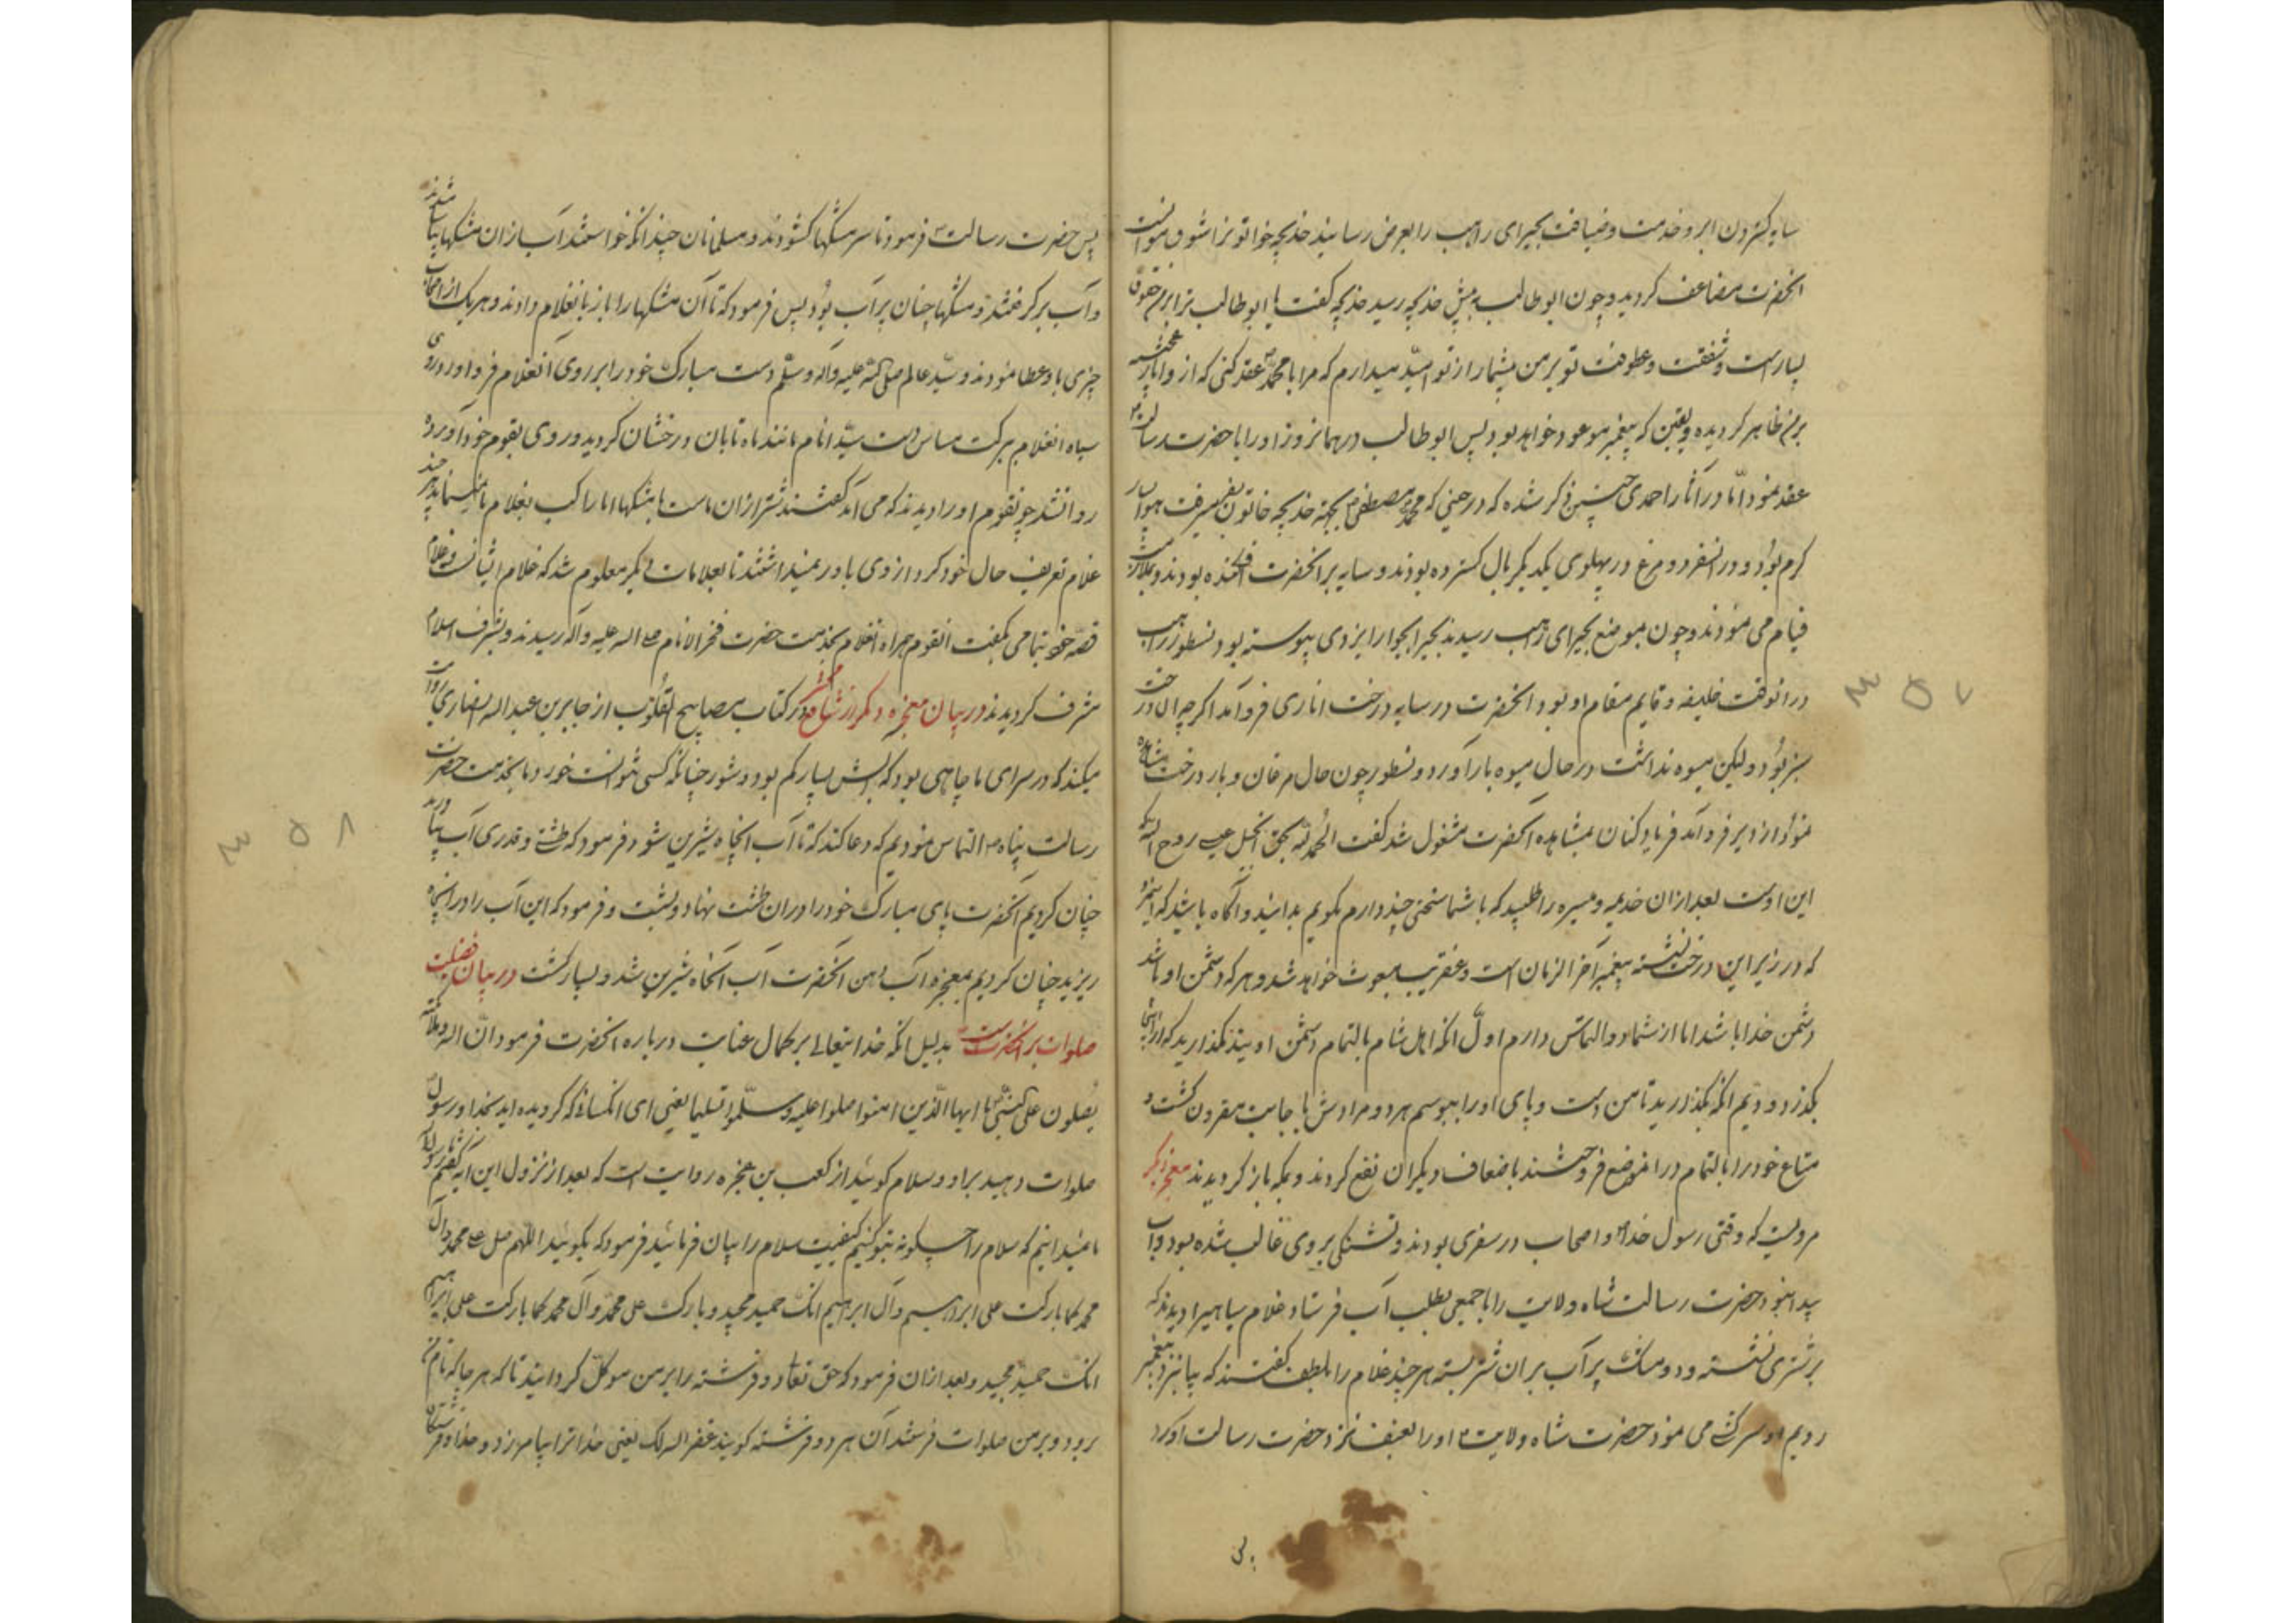 سایه کردن ابر و خدمت و ضیافت بحیرای راهب را بعرض رسانید خدیجه خواتونرا شوق مواصلت
انحضرت مضاعف کردید و چون ابوطالب به پیش خدیجه رسید خدیجه کفت یا ابوطالب ترا بر من حقوق
بسیارست و شفقت و عطوفت تو بر من بیشمار از تو امید میدارم که مرا با محمد عقد کنی که از و آثار
بر من ظاهر کردیده و یقین که پیغمبر موعود خواهد بود پس ابوطالب در همانروز او را با حضرت رسالت
عقد نمود اما در آثار احمدی چنین ذکر شده که در حینی که محمد مصطفی بجهة خدیجه خاتون بسفر میرفت هوا بسیار
کرم بود و در انسفر دو مرغ در پهلوی یکدیکر بال کسترده بودند و سایه بر انحضرت افکنده بودند و
قیام می نمودند و چون بموضع بحیرای راهب رسیدند بحیرا بجوار ایزدی پیوسته بود نسطور راهب
در انوقت خلیفه و قایم مقام او بود انحضرت در سایه درخت اناری فرو آمد اکرچه ان درخت
سبز بود ولیکن میوه نداشت در حال میوه بار آورد و نسطور چون حال مرغان و بار درخت مشاهده
نمود از دیر فرو آمد فریاد کنان بمشاهده انحضرت مشغول شد کفت الحمد لله بحق انجیل عیسی روح الله که
این اوست بعد از ان خدیمه و میسره را طلبید که با شما سخنی چند دارم بکویم بدانید و آگاه باشید که
که در زیر این درخت نشسته پیغمبر آخر الزمان است و عنقریب مبعوث خواهد شد و هر که دشمن او باشد
دشمن خدا باشد اما از شما دو التماس دارم اول انکه اهل شام بالتمام دشمن اویند نکذارید که از اینجا
بکذرد دویم انکه بکذارید تا من دست و پای او را ببوسم هر دو مرادش باجابت مقرون کشت و
متاع خود را بالتمام در انموضع فروختند باضعاف دیکران نفع کردند و بمکه باز کردیدند معجزه دیکر
مرویست که وقتی رسول خدا و اصحاب در سفری بودند و تشنکی بر وی غالب شده بود و آب
پیدا نبود حضرت رسالت شاه ولایت را با جمعی بطلب آب فرستاد غلام سیاهیرا دیدند که
بر شتری نشسته و دو مشک پر آب بران شتر بسته هر چند غلام را بلطف کفتند که بیا بنزد پیغمبر
رویم او سرکشی می نمود حضرت شاه ولایت او را بعنف بنزد حضرت رسالت آورد
پس
پس حضرت رسالت فرمود تا سر مشکها کشودند و مسلمانان چندانکه خواستند آب از ان مشکها بیاشامیدند
و آب بر کرفتند و مشکها چنان پر آب بود پس فرمود که تا آن مشکها را باز بانغلام دادند و هر یک از اصحاب
چیزی باو عطا نمودند و سید عالم صلی الله علیه و آله و سلم دست مبارک خود را بر روی آنغلام فرو آورد روی
سیاه انغلام ببرکت مساس دست سید انام مانند ماه تابان درخشان کردید و روی بقوم خود آورده
روانشد چو نقوم او را دیدند که می آید کفتند شتر از ان ماست با مشکها اما راکب بغلام ما نمیماند هر چند
غلام تعریف حال خود کرد از وی باور نمیداشتند تا بعلامات دیکر معلوم شد که غلام ایشانست و غلام
قصه خود بتمامی بکفت انقوم همراه انغلام بخدمت حضرت فخر الانام صلی الله علیه و آله رسیدند و بشرف اسلام
مشرف کردیدند در بیان معجزه دیکر از شاه در کتاب مصابیح القلوب از جابر بن عبد الله انصاری روایت
میکند که در سرای ما چاهی بود که آبش بسیار کم بود و شور چنانکه کسی نتوانست خورد ما بخدمت حضرت
رسالت پناه التماس نمودیم که دعا کند که تا آب انچاه شیرین شود فرمود که طشتی و قدری آب بیاورید
چنان کردیم انحضرت پای مبارک خود را در ان طشت نهاد و بشست و فرمود که این آب را در انچاه
ریزید چنان کردیم بمعجزه آب دهن انحضرت آب انچاه شیرین شد و بسیار کشت در بیان فضیلت
صلوات بر انحضرت است بدلیل انکه خدایتعالی بر کمال عنایت درباره انحضرت فرمود ان الله و ملائکته
یصلون علی النبی یا ایها الذین امنوا صلوا علیه و سلموا تسلیما یعنی ای انکسانی که کرویده اید بخدا و رسول
صلوات دهید بر او و سلام کوئید از کعب بن عجزه روایت است که بعد از نزول این آیه کفتم یا رسول الله
ما نمیدانیم که سلام را چکونه بتو کنیم کیفیت سلام را بیان فرمائید فرمود که بکوئید اللهم صل علی محمد و آل
محمد کما بارکت علی ابراهیم و آل ابراهیم انک حمید مجید و بارک علی محمد و آل محمد کما بارکت علی ابراهیم
انک حمید مجید و بعد ازان فرمود که حق تعالی دو فرشته را بر من موکل کردانید تا که هر جا که نام من
برود و بر من صلوات فرستد آن هر دو فرشته کویند غفر الله لک یعنی خدا ترا بیامرزد و خدا و فرشتکان